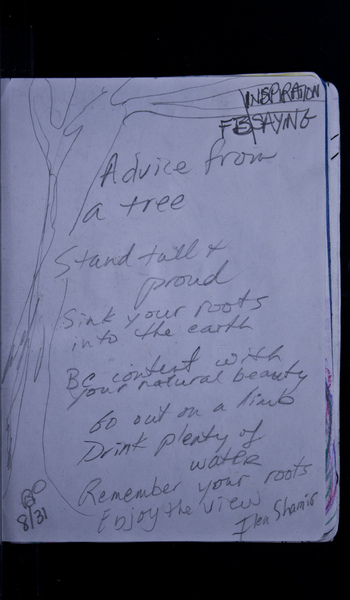 INSPIRATION
Advice from
a tree
Stand tall &
proud
Sink your roots
into the earth
Be content with
your natural beauty
Go out on a limb
Drink plenty of
water
Remember your roots
Enjoy the view
Ilan Shamir
8/31